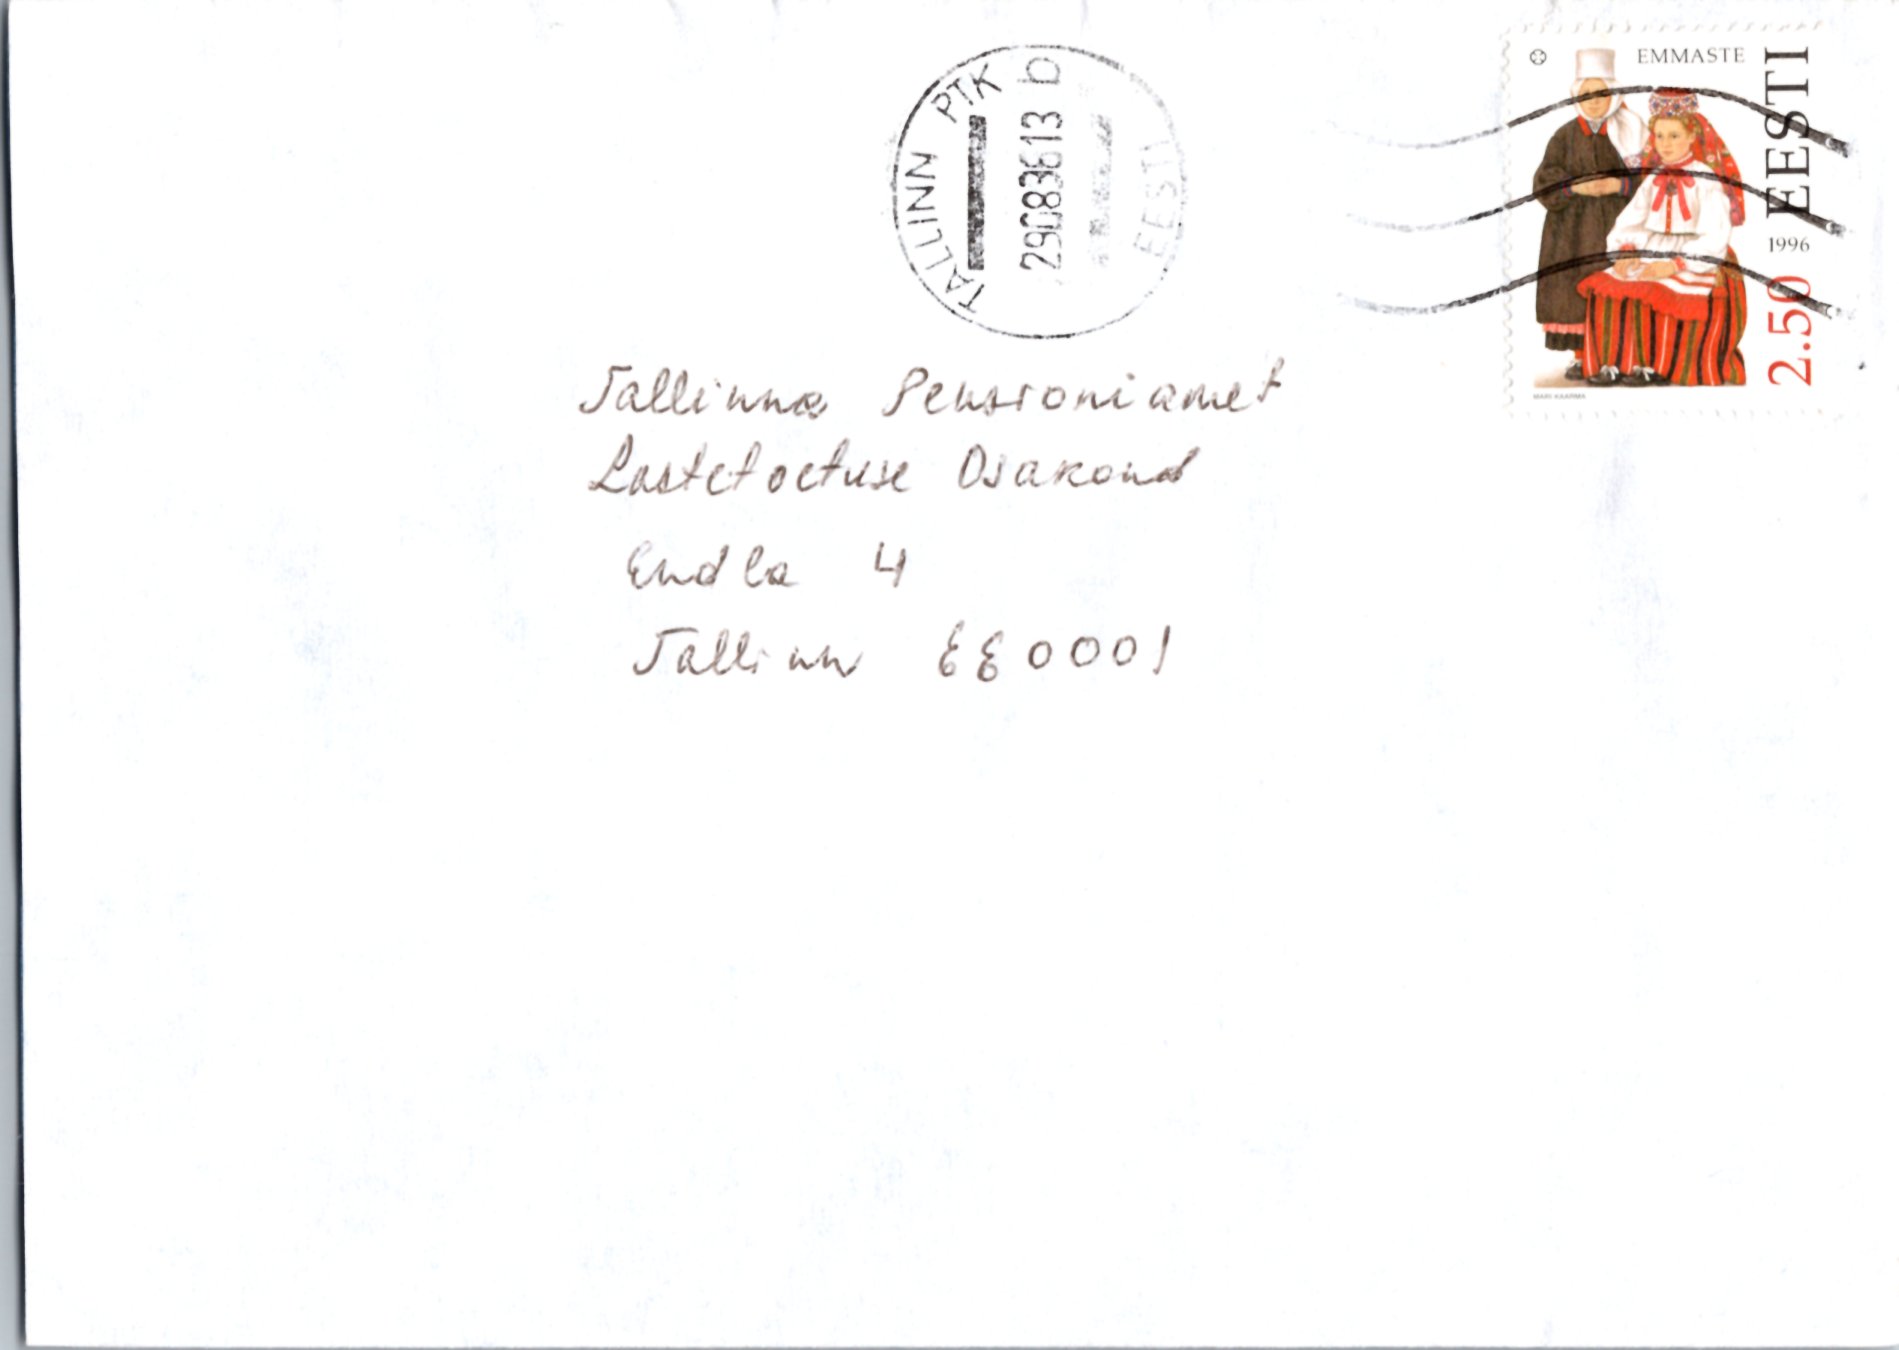 TALLINN PTK
b
29083613
EESTI
EMMASTE
EESTI
1996
2.50
MARI KAARMA
Tallinna Pensioniamet
Lastetoetuse Osakond
Endla 4
Tallinn EE0001